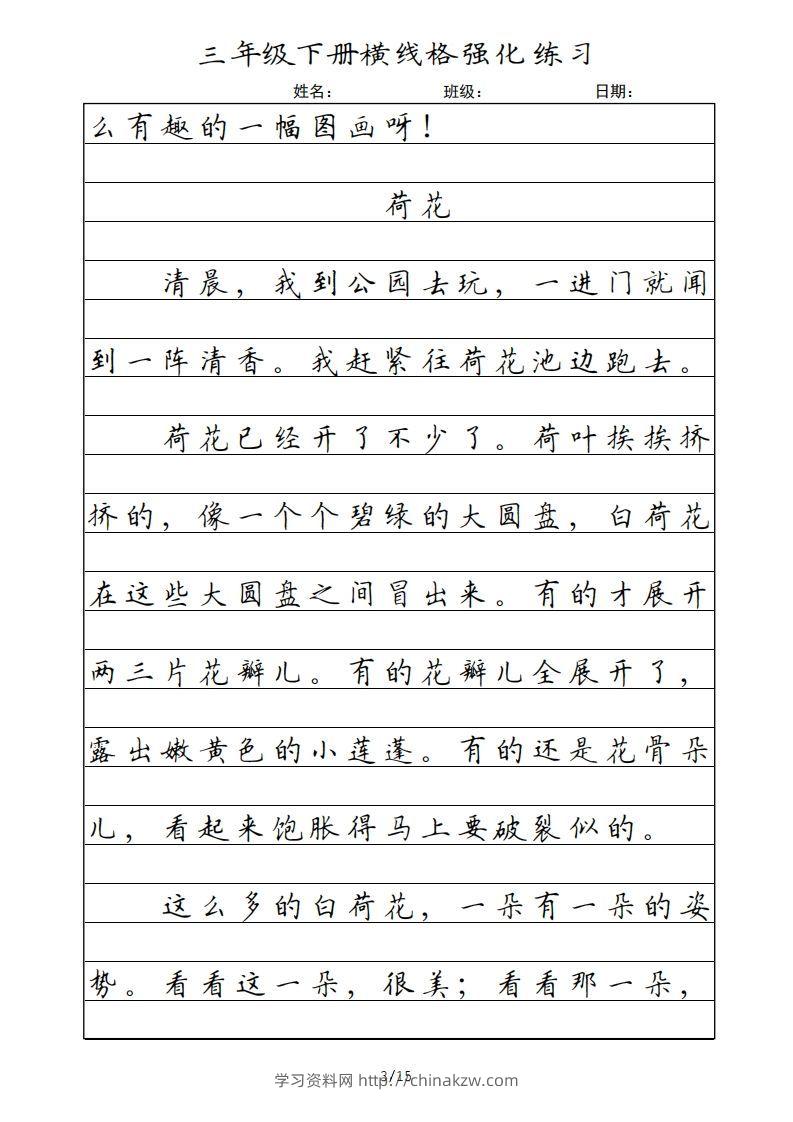 三年级下册横线格强化练习
姓名： 班级： 日期：
么有趣的一幅图画呀！
荷花
清晨，我到公园去玩，一进门就闻
到一阵清香。我赶紧往荷花池边跑去。
荷花已经开了不少了。荷叶挨挨挤
挤的，像一个个碧绿的大圆盘，白荷花
在这些大圆盘之间冒出来。有的才展开
两三片花瓣儿。有的花瓣儿全展开了，
露出嫩黄色的小莲蓬。有的还是花骨朵
儿，看起来饱胀得马上要破裂似的。
这么多的白荷花，一朵有一朵的姿
势。看看这一朵，很美；看看那一朵，
3/15
学习资料网 http://chinakzw.com